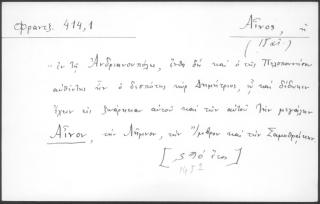 Φραντζ. 414,1
Αἶνος, ἡ
"ἐν τῇ Ἀνδριανουπόλει, ἔνθα δὴ καὶ ὁ τῆς Πελοποννήσου
αὐθέντης ἦν ὁ δεσπότης κὺρ Δημήτριος, ᾧ καὶ δέδωκεν
ἔχειν εἰς ζωάρκειαν αὐτοῦ καὶ τὴν αὐτοῦ τὴν μεγάλην
Αἶνον, τὴν Λῆμνον, τὴν Ἴμβρον καὶ τὴν Σαμοθρᾴκην